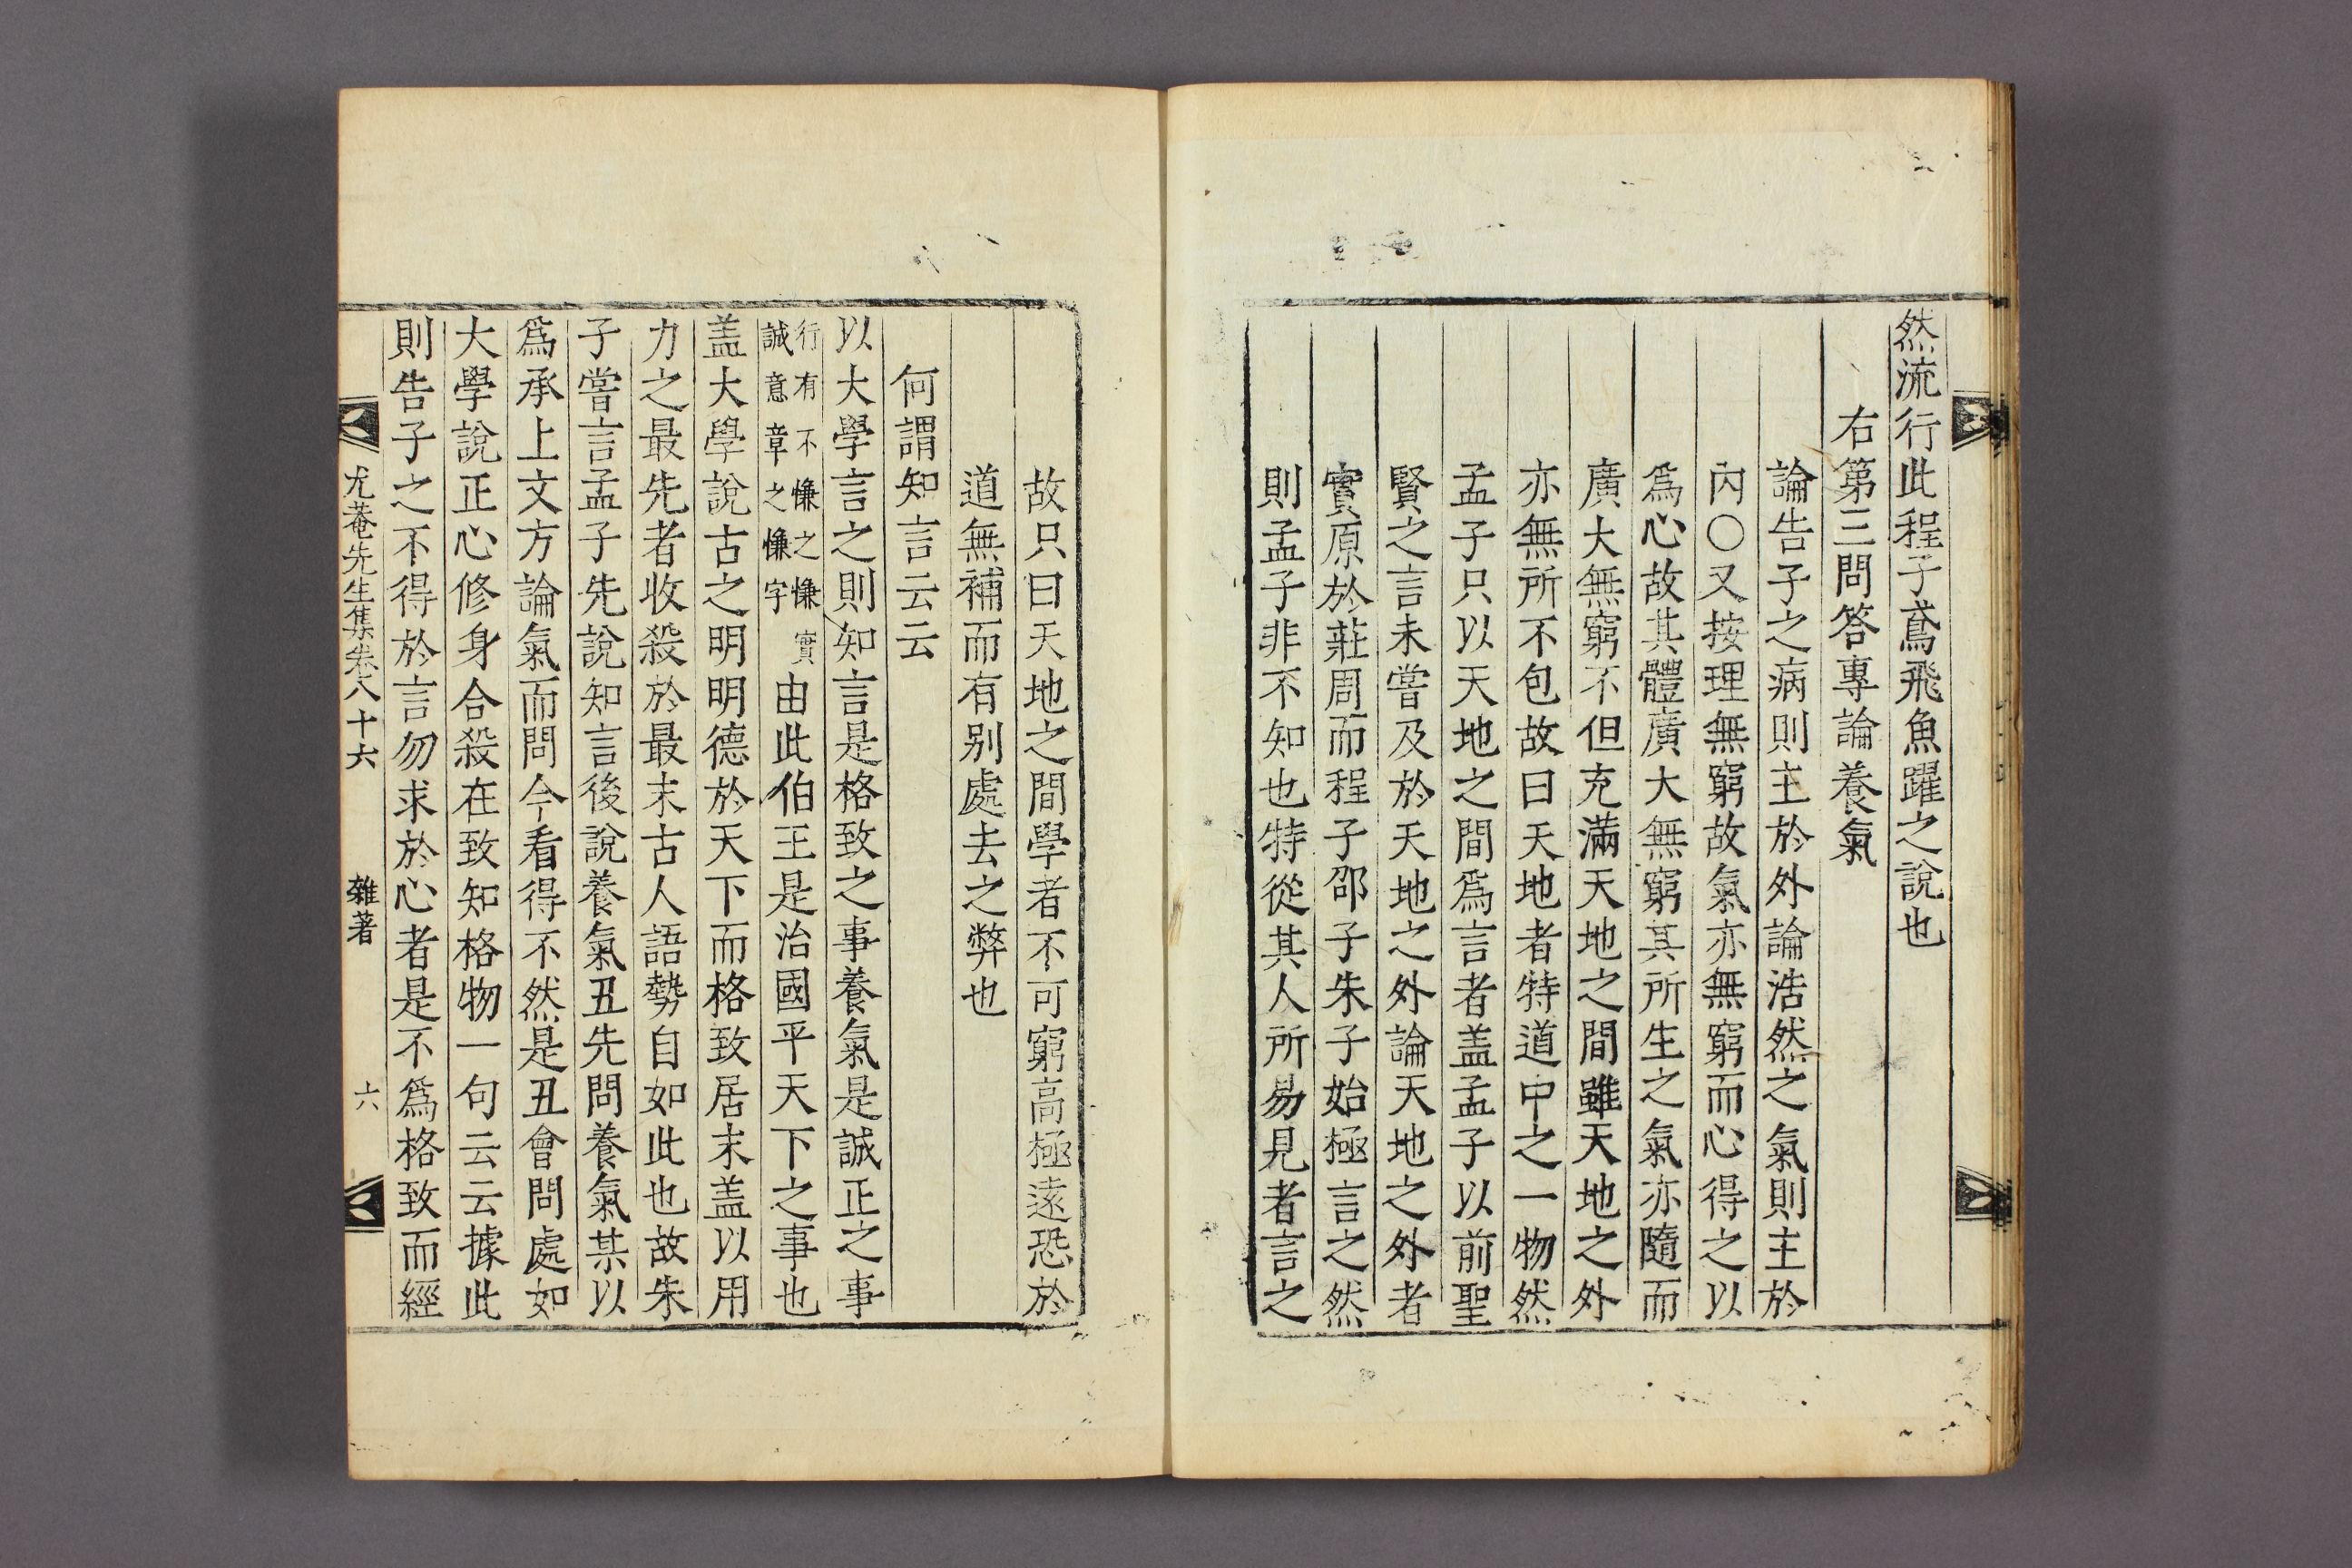 然流行此程子鳶飛魚躍之說也
右第三問答專論養氣
論告子之病則主於外論浩然之氣則主於
內○又按理無窮故氣亦無窮而心得之以
爲心故其體廣大無窮其所生之氣亦隨而
廣大無窮不但充滿天地之間雖天地之外
亦無所不包故曰天地者特道中之一物然
孟子只以天地之間爲言者盖孟子以前聖
賢之言未嘗及於天地之外論天地之外者
實原於莊周而程子邵子朱子始極言之然
則孟子非不知也特從其人所易見者言之
故只曰天地之間學者不可窮高極遠恐於
道無補而有別處去之弊也
何謂知言云云
以大學言之則知言是格致之事養氣是誠正之事
行有不慊之慊實
誠意章之慊字
由此伯王是治國平天下之事也
盖大學說古之明明德於天下而格致居末盖以用
力之最先者收殺於最末古人語勢自如此也故朱
子嘗言孟子先說知言後說養氣丑先問養氣某以
爲承上文方論氣而問今看得不然是丑會問處如
大學說正心修身合殺在致知格物一句云云據此
則告子之不得於言勿求於心者是不爲格致而經
尤菴先生集卷八十六
雜著
六